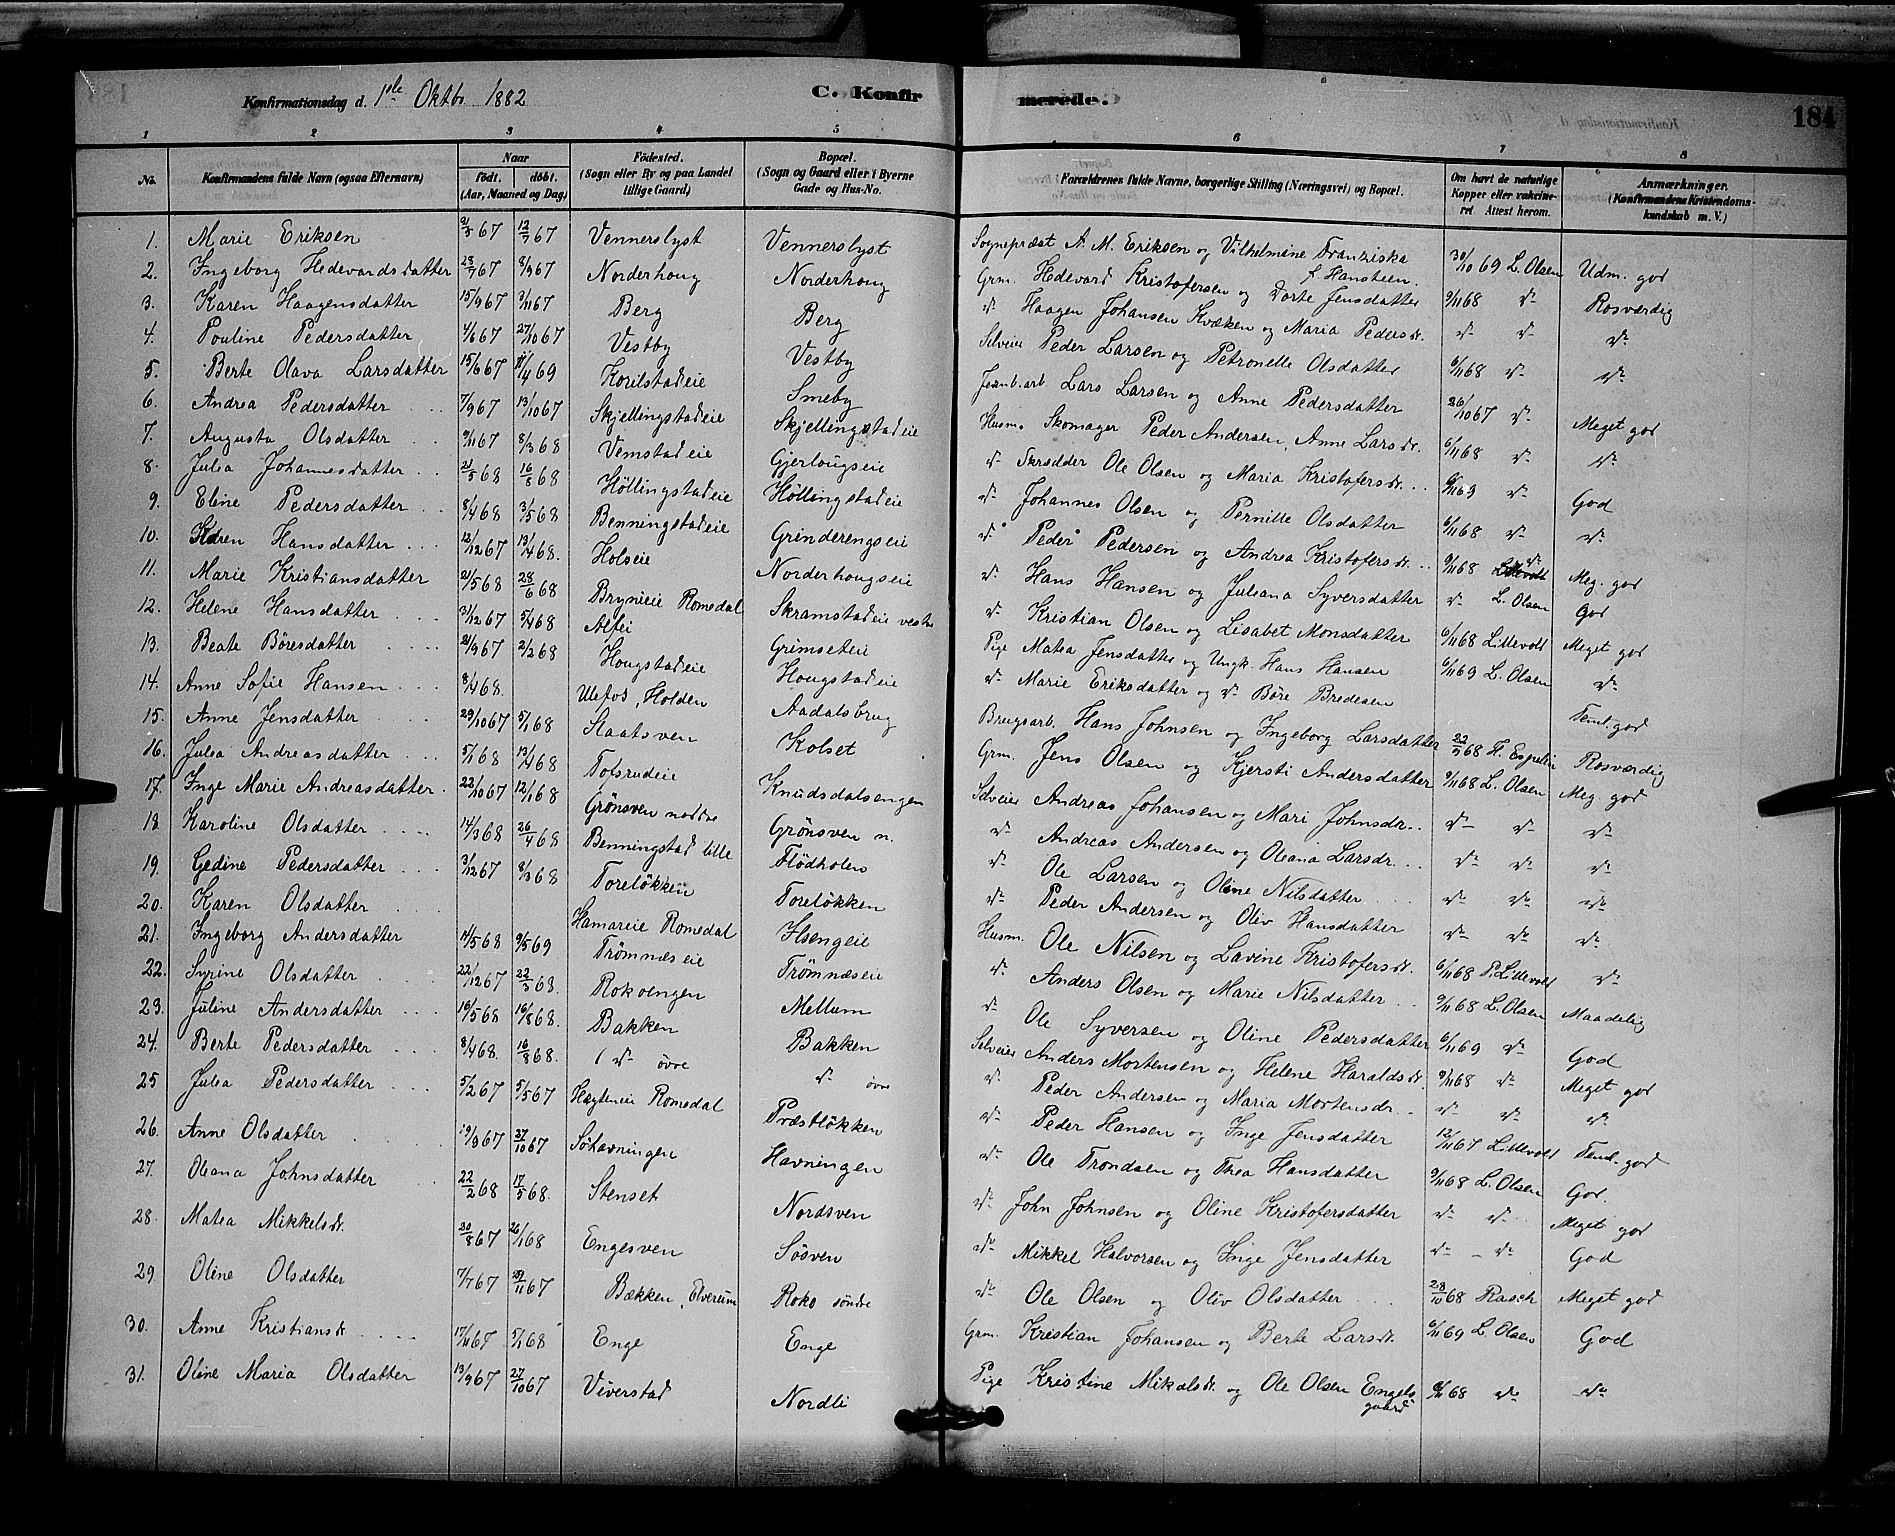 Konfirmationsdag d. 1ste Oktbr 1882 C. Konfirmerede. 184
1 2 3 4 5 6 7 8
No. | Konfirmandens fulde Navn (ogsaa Efternavn) | Naar født. døbt. (Aar, Maaned og Dag) | Födested. (Sogn eller By og paa Landet tillige Gaard) | Bopæl. (Sogn og Gaard eller i Byerne Gade og Hus-No. | Forældrenes fulde Navne, borgerlige Stilling (Næringsvei) og Bopæl. | Om havt de naturlige Kopper eller vakcineret Attest herom. | Anmærkninger. (Konfirmandens Kristendomskundskab m. V.)
1. Marie Eriksen 2/5 67 12/7 67 Vennerslyst Vennerslyst Sognepræst A. M. Eriksen og Vilhelmine Franziska f. Hansteen. 30/10 69 L. Olsen Udm. god
2. Ingeborg Hedevardsdatter 28/7 67 8/9 67 Norderhoug Norderhoug Grm. Hedevard Kristofersen og Dorte Jensdatter 9/11 68 do Rosværdig
3. Karen Haagensdatter 15/9 67 3/11 67 Berg Berg do Haagen Johansen Kvæken og Maria Pedersdr. do do do
4. Pouline Pedersdatter 4/6 67 27/10 67 Vestby Vestby Selveier Peder Larsen og Petronelle Olsdatter 6/11 68 do do
5. Berte Olava Larsdatter 15/6 67 /4 69 Korilstadeie Smeby Jernb.arb. Lars Larsen og Anne Pedersdatter 26/10 67 do Meget god
6. Andrea Pedersdatter 7/9 67 13/10 67 Skjellingstadeie Skjellingstadeie Husm. Skomager Peder Andersen, Anne Larsdr. 6/11 68 do do
7. Augusta Olsdatter 9/11 67 8/3 68 Vemstadeie Gjerlougseie do Skrædder Ole Olsen og Maria Kristofersdr. 6/11 69 do God
8. Julia Johannesdatter 21/5 68 16/8 68 Höllingstadeie Höllingstadeie do Johannes Olsen og Pernille Olsdatter 6/11 68 do do
9. Eline Pedersdatter 8/4 68 3/5 68 Benningstadeie Grinderengseie do Peder Pedersen og Andrea Kristofersdr. 9/11 68 do Meg. god
10. Karen Hansdatter 12/12 67 13/4 68. Holseie Norderhougseie do Hans Hansen og Juliana Syversdatter do L. Olsen God
11. Marie Kristiansdatter 21/5 68 28/6 68 Brynieie Romedal Skramstadeie vestre do Kristian Olsen og Lisabet Monsdatter 6/11 68 Littevold Meget god
12. Helene Hansdatter 31/12 67 5/4 68 Alfei Grimseteie Pige Matea Jensdatter og Ungk. Hans Hansen 6/11 69 L. Olsen do
13. Beate Böresdatter 21/9 67 2/2 68 Hougstadeie Hougstadeie do Marie Eriksdatter og do Böre Bredesen Teml. god
14. Anne Sofie Hansen 8/4 68. Ulefos, Holden Aadalsbrug Brugsarb. Hans Johnsen og Ingeborg Larsdatter 22/9 68 H. Espelin Rosværdig
15. Anne Jensdatter 29/10 67 5/1 68 Staatsven Kolset Grm. Jens Olsen og Kjersti Andersdatter 9/11 68 L. Olsen Meg. god
16. Julia Andreasdatter 5/1 68 13/4 68 Tofsrudeie Knudsdalsengen Selveier Andreas Johansen og Mari Johnsdr. do do do
17. Inge Marie Andreasdatter 22/10 67 12/1 68 Grönsven nedre Grönsven n. do Andreas Andersen og Oleana Larsdr. do do do
18. Karoline Olsdatter 14/3 68 26/4 68 Benningstad lille Flödholen do Ole Larsen og Oline Nilsdatter do do do
19. Gedine Pedersdatter 3/12 67 8/3 68 Torelökken Torelökken do Peder Andersen og Oliv Hansdatter do do do
20. Karen Olsdatter Hamareie Romedal Ilsengeie Husm. Ole Nilsen og Lavine Kristofersdr. 6/11 68 P. Littevold do
21. Ingeborg Andersdatter 14/5 68 9/5 69 Trömnæseie Trömnæseie do Anders Olsen og Marie Nilsdatter 9/11 68 L. Olsen Maadelig
22. Syrine Olsdatter 22/12 67 22/3 68. Rokoengen Mellum do Ole Syversen og Oline Pedersdatter 6/11 69 do God
23. Juline Andersdatter 16/5 68 16/8 68. Bakken Bakken Selveier Anders Mortensen og Helene Haraldsdr. 9/11 68 do Meget god
24. Berte Pedersdatter 8/4 68 16/8 68. do övre do övre do Peder Andersen og Maria Mortensdr. do do do
25 Julia Pedersdatter 5/2 67 5/5 67 Hægteneie Romedal Præstlökken do Peder Hansen og Inge Jensdatter 12/11 67 Littevold Teml. god
26. Anne Olsdatter 19/9 67 27/10 67 Söhavningen Havningen do Ole Trondsen og Thea Hansdatter 9/11 68 L. Olsen God.
27. Oleana Johnsdatter 22/2 68 17/5 68. Stenset Nordsven do John Johnsen og Oline Kristofersdatter do do Meget god
28. Matea Mikkelsdr. 30/8 67 26/1 68 Engesven Sösven do Mikkel Halvorsen og Inge Jensdatter do - do God
29. Oline Olsdatter 7/7 67 29/11 67 Bækken, Elverum Roko söndre do Ole Olsen og Oliv Olsdatter 28/10 68 Rasch Meget god
30. Anne Kristiansdr. 17/11 67 5/1 68 Enge Enge Grm. Kristian Johansen og Berte Larsdr. 6/11 69 L. Olsen God
31. Oline Maria Olsdatter 13/9 67 27/10 67 Viverstad Nordli Pige Kristine Mikalsdr. og Ole Olsen Engelsgaard 9/11 68 do do